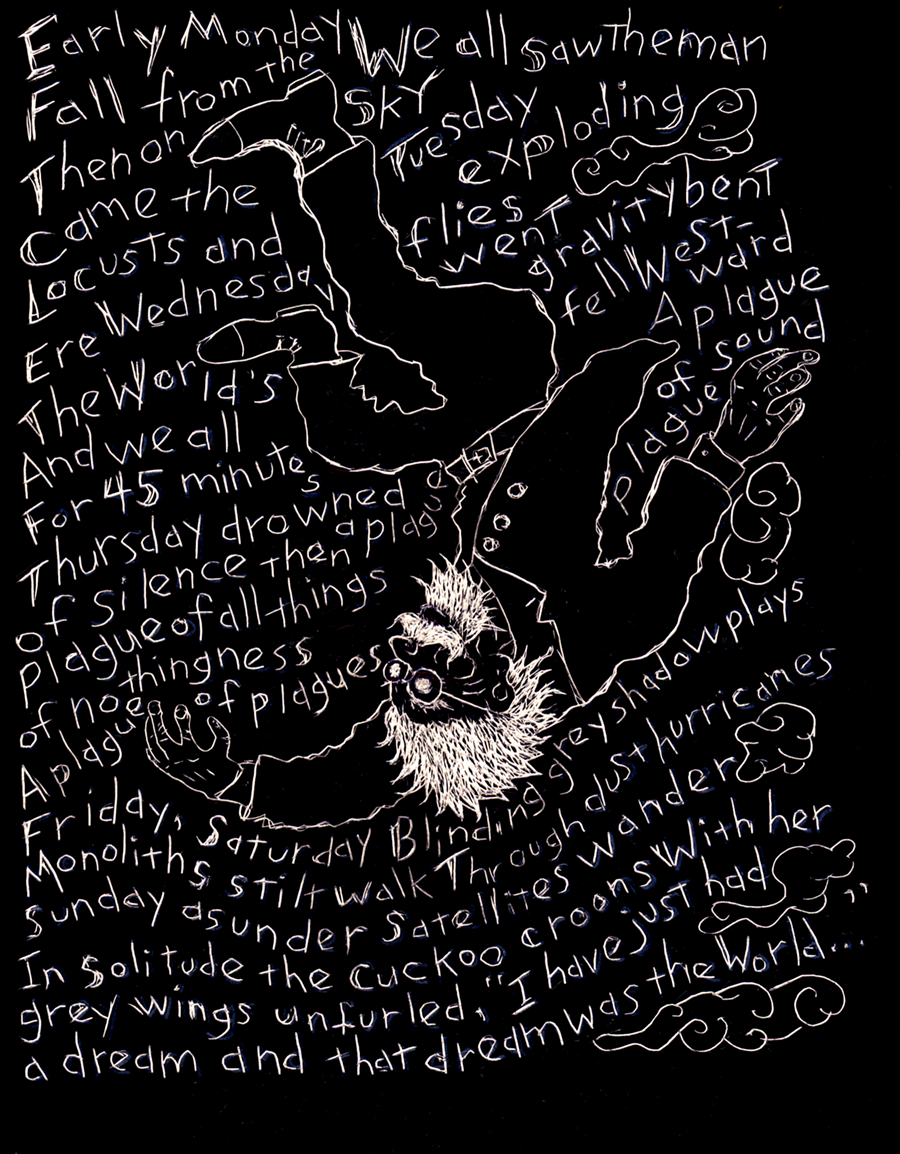 Early Monday We all saw the man
Fall from the Sky
Then on Tuesday
Came the exploding
Locusts and flies
Ere Wednesday went
The World's gravity bent
And we all fell West-
ward
For 45 minutes
A plague
of sound
plague
Thursday drowned
of silence then a plague
plague of all things
of no thingness
A plague of plagues
Friday, Saturday Blinding grey shadowplays
Monoliths stiltwalk Through dust hurricanes
Sunday asunder Satellites wander
In Solitude the cuckoo croons With her
grey wings unfurled, "I have just had
a dream and that dream was the World..."